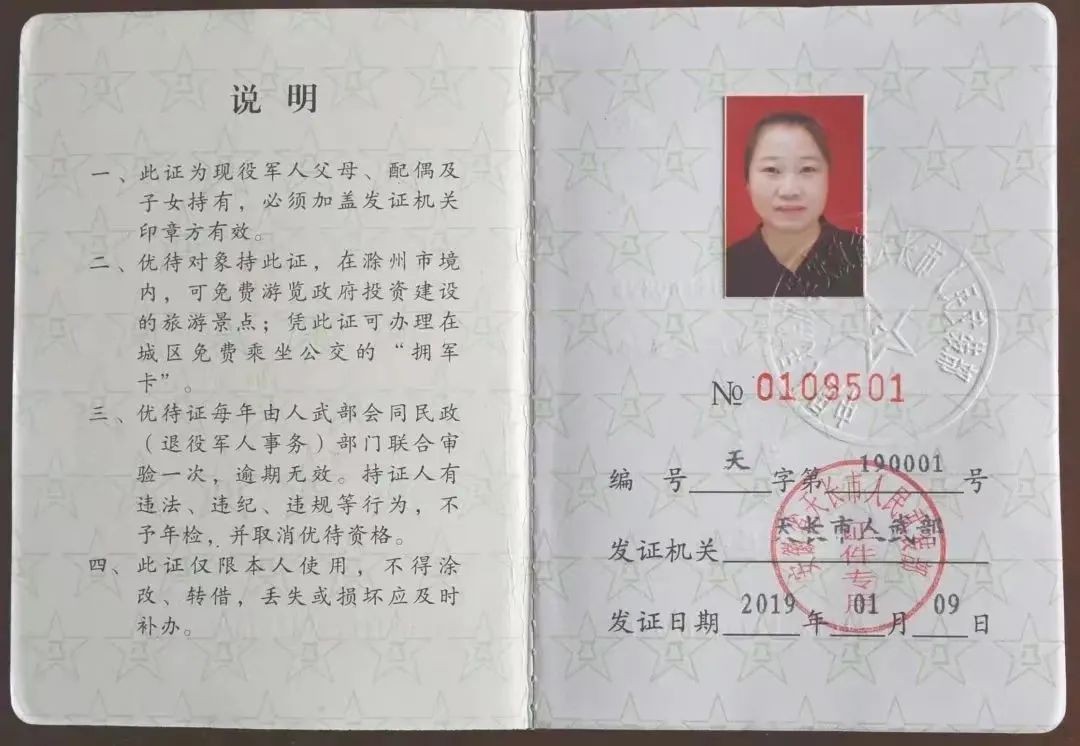 说 明
一、此证为现役军人父母、配偶及
子女持有，必须加盖发证机关
印章方有效。
二、优待对象持此证，在滁州市境
内，可免费游览政府投资建设
的旅游景点；凭此证可办理在
城区免费乘坐公交的“拥军
卡”。
三、优待证每年由人武部会同民政
（退役军人事务）部门联合审
验一次，逾期无效。持证人有
违法、违纪、违规等行为，不
予年检，并取消优待资格。
四、此证仅限本人使用，不得涂
改、转借，丢失或损坏应及时
补办。
天长市人民武装部
№ 0109501
编 号 天 字第 190001 号
发证机关 天长市人武部
安徽省天长市人民武装部
证件专用
发证日期 2019 年 01 月 09 日